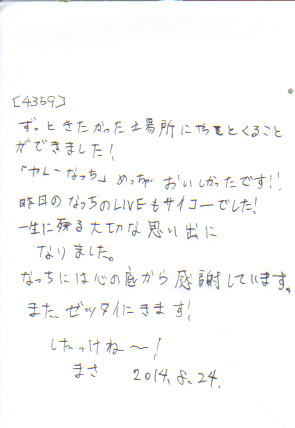 [4359]
ずっときたかった場所にやっとくること
ができました!
「カレーなっち」めっちゃおいしかったです!!
昨日のなっちのLIVEもサイコーでした!
一生に残る大切な思い出に
なりました。
なっちには心の底から感謝しています。
また、ゼッタイにきます!
したっけね〜!
まさ 2014.8.24.